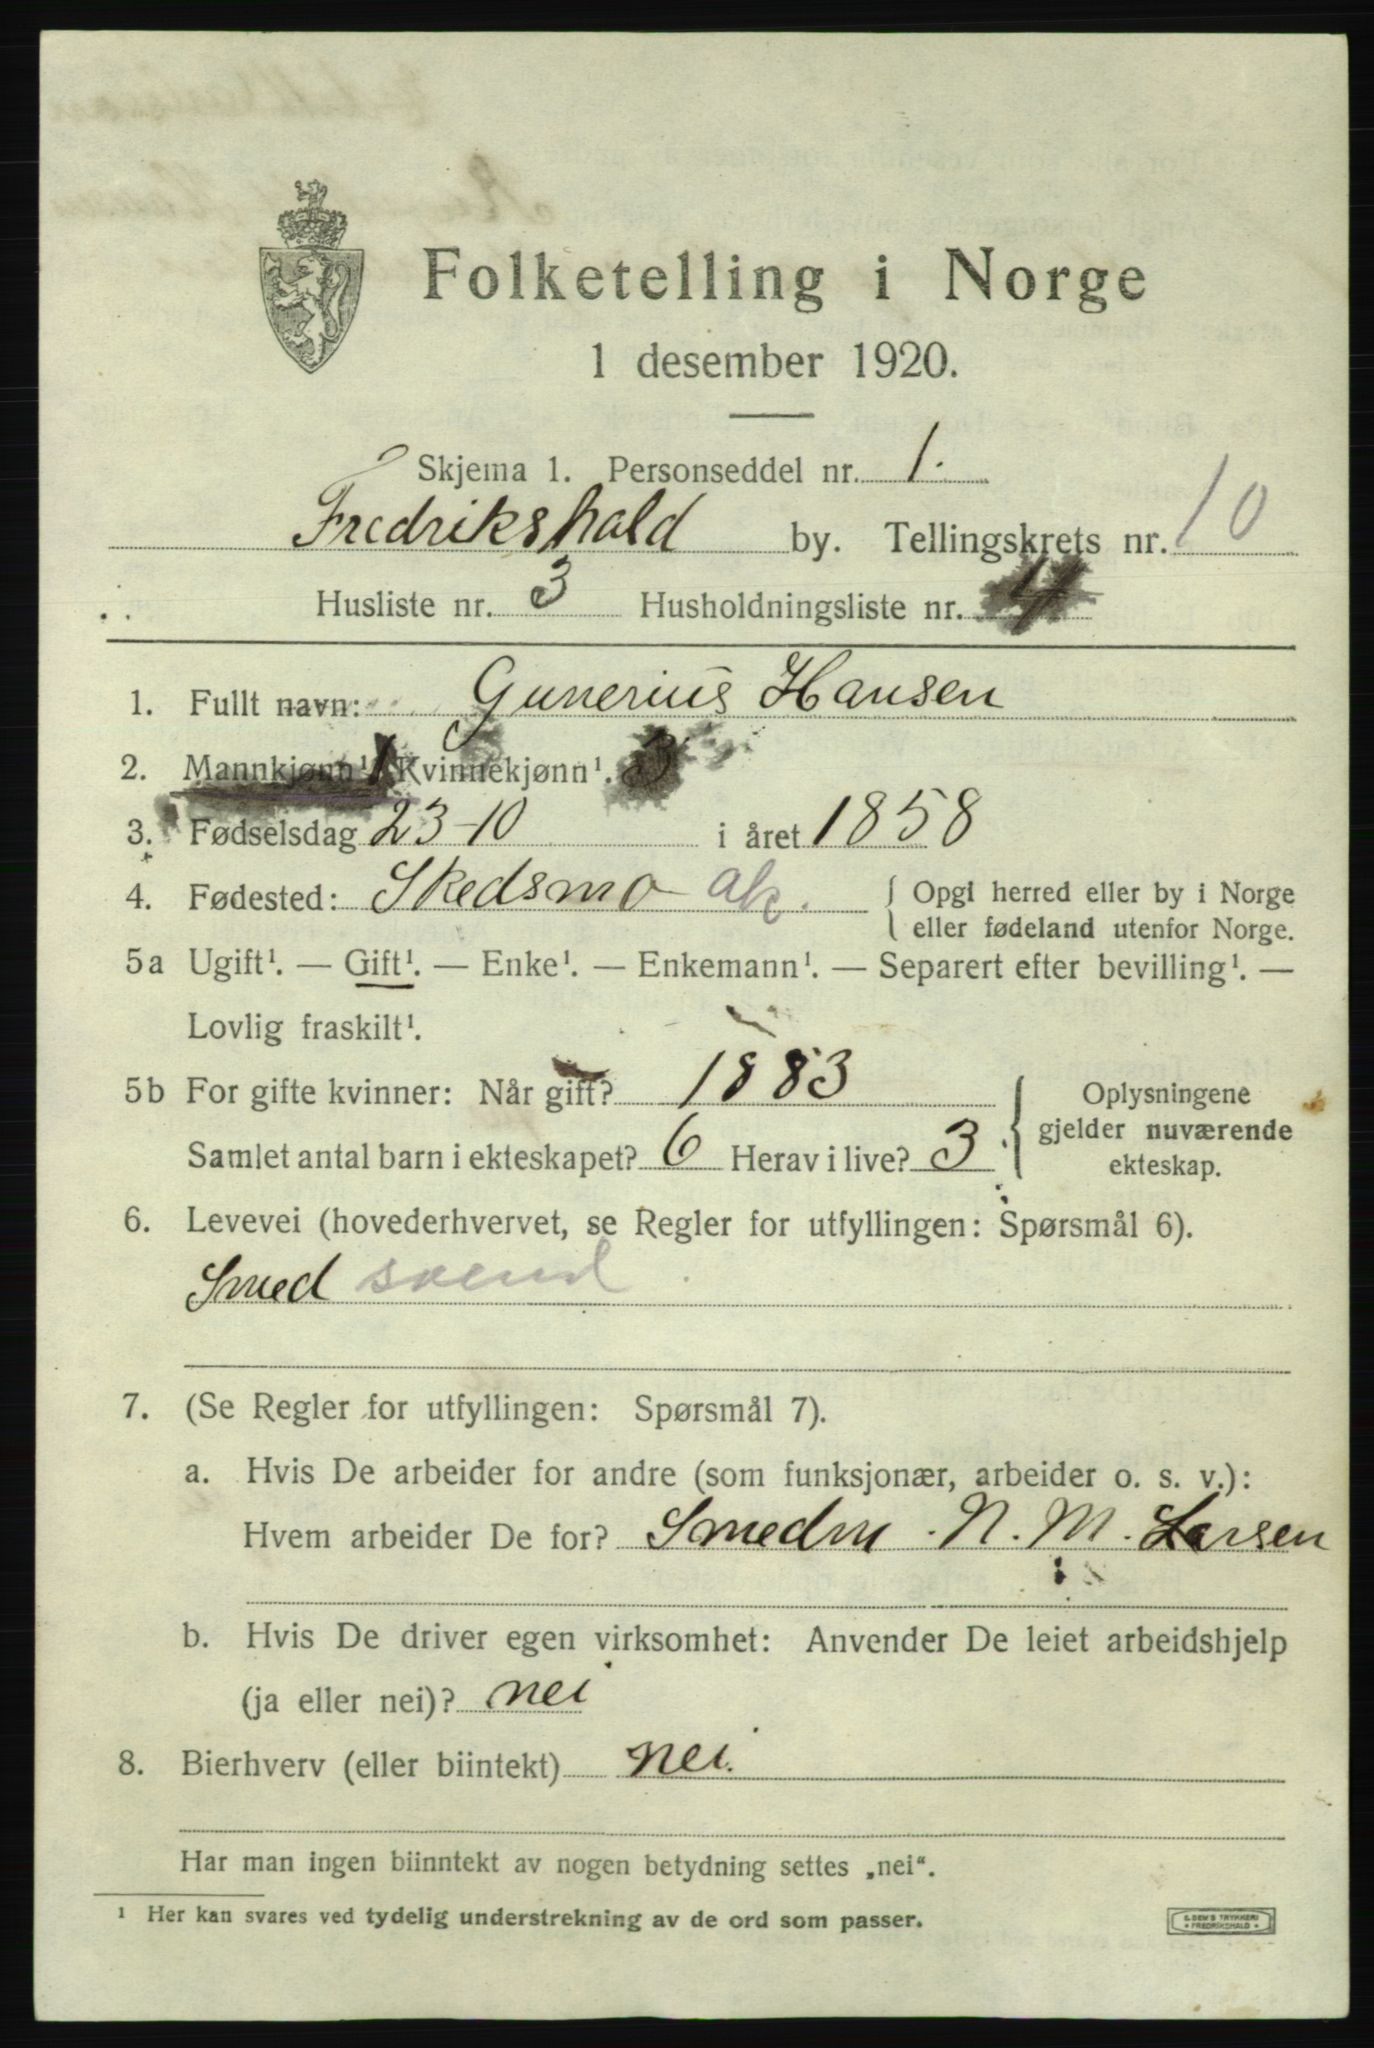 Folketelling i Norge
1 desember 1920.
Skjema 1. Personseddel nr. 1.
Fredrikshald by. Tellingskrets nr. 10
Husliste nr. 3 Husholdningsliste nr. 4
1. Fullt navn: Gunerius Hansen
2. Mannkjønn¹ 1 Kvinnekjønn¹. 3
3. Fødselsdag 23-10 i året 1858
4. Fødested: Skedsmo ak. { Opgi herred eller by i Norge
eller fødeland utenfor Norge.
5a Ugift¹. — Gift¹. — Enke¹. — Enkemann¹. — Separert efter bevilling¹. —
Lovlig fraskilt¹.
5b For gifte kvinner: Når gift? 1883
Samlet antal barn i ekteskapet? 6 Herav i live? 3.
Oplysningene
gjelder nuværende
ekteskap.
6. Levevei (hovederhvervet, se Regler for utfyllingen: Spørsmål 6).
Smed svend
7. (Se Regler for utfyllingen: Spørsmål 7).
a. Hvis De arbeider for andre (som funksjonær, arbeider o. s. v.):
Hvem arbeider De for? N. M. Larsen
b. Hvis De driver egen virksomhet: Anvender De leiet arbeidshjelp
(ja eller nei)? nei
8. Bierhverv (eller biintekt) nei.
Har man ingen biinntekt av nogen betydning settes „nei“.
¹ Her kan svares ved tydelig understrekning av de ord som passer.
TRYKKERI
FREDRIKSHALD